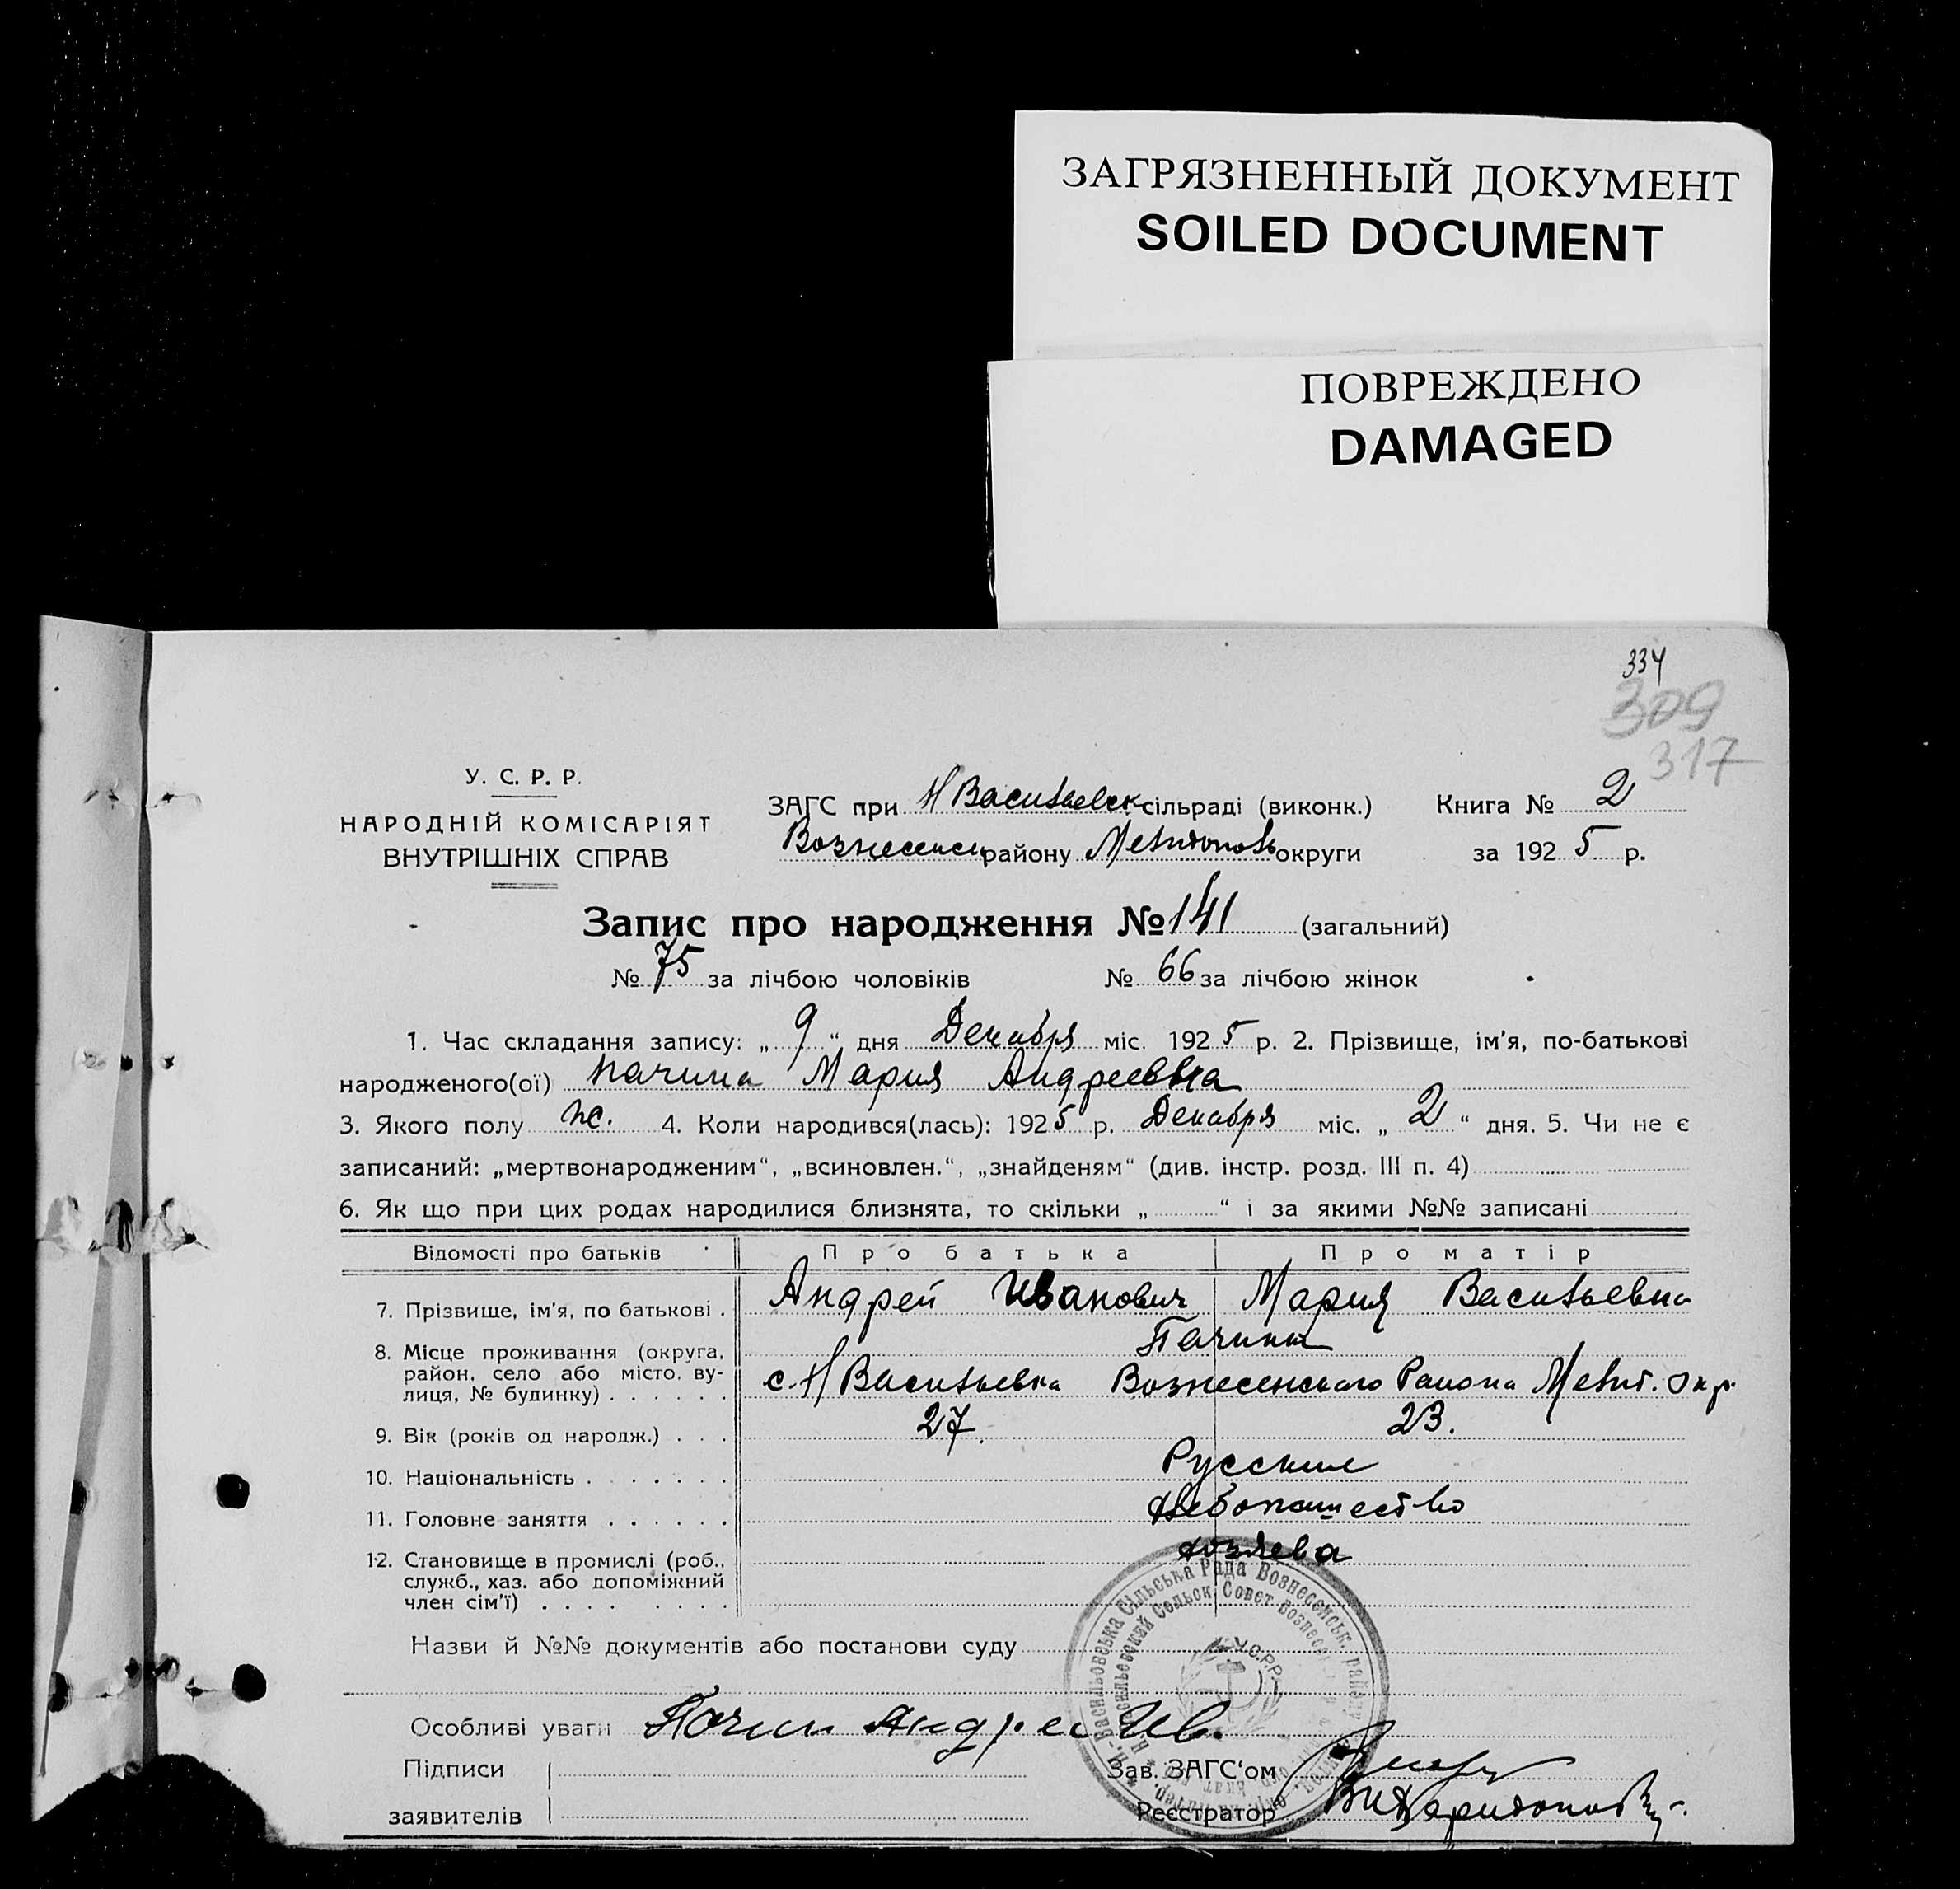 ЗАГРЯЗНЕННЫЙ ДОКУМЕНТ
SOILED DOCUMENT
ПОВРЕЖДЕНО
DAMAGED
334
309
317
У. С. Р. Р.
НАРОДНІЙ КОМІСАРІЯТ
ВНУТРІШНІХ СПРАВ
ЗАГС при Н Васильевск сільраді (виконк.) Книга № 2
Вознесенск району Мелитополь округи за 1925 р.
Запис про народження № 141 (загальний)
№ 75 за лічбою чоловіків № 66 за лічбою жінок
1. Час складання запису: „ 9 “ дня Декабря міс. 1925 р. 2. Прізвище, ім'я, по-батькові
народженого(ої) Пачина Мария Андреевна
3. Якого полу ж. 4. Коли народився(лась): 1925 р. Декабря міс. „ 2 “ дня. 5. Чи не є
записаний: „мертвонародженим“, „всиновлен.“, „знайденям“ (див. інстр. розд. III п. 4)
6. Як що при цих родах народилися близнята, то скільки „ “ і за якими №№ записані
Відомості про батьків Про батька Про матір
7. Прізвище, ім'я, по батькові . Андрей Иванович Мария Васильевна
Пачины
8. Місце проживання (округа,
район, село або місто, ву-
лиця, № будинку) . . . . . . с. Н Васильевка Вознесенского Района Мелит. окр.
9. Вік (років од народж.) . . . 27. 23.
10. Національність . . . . . . . Русские
11. Головне заняття . . . . . . Хлебопашество
12. Становище в промислі (роб., хозяева
служб., хаз. або допоміжний
член сім'ї) . . . . . . . . .
Н.-Васильовська Сільська Рада Вознесенськ. району
Н. Васильевский Сельск. Совет Вознесе
У.С.Р.Р.
Назви й №№ документів або постанови суду
Особливі уваги Пачин Андрей Ив.
Підписи
заявителів
Зав. ЗАГС‘ом
Реєстратор